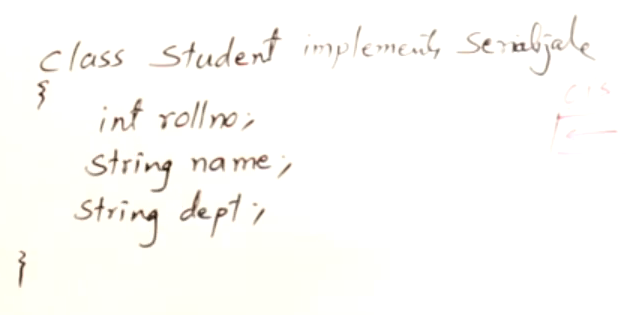 class Student implements Serializable
{
int rollno;
String name;
String dept;
}